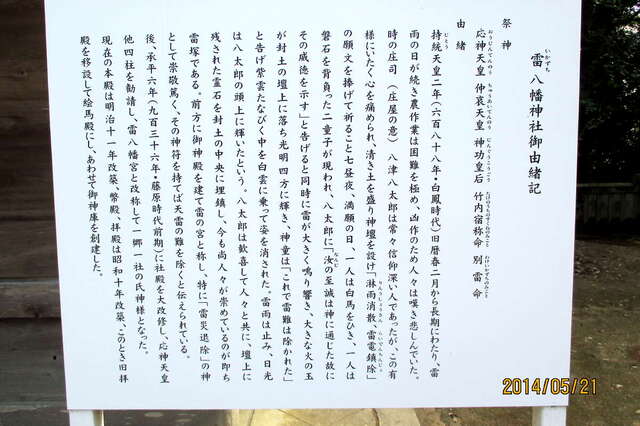 雷八幡神社御由緒記
いかづち
祭神
応神天皇 仲哀天皇 神功皇后 竹内宿称命 別雷命
おうじんてんのう ちゅうあいてんのう じんぐうこうごう たけのうちのすくねのみこと わけいかづちのみこと
由緒
持統天皇二年(六百八十八年・白鳳時代)旧暦春二月から長期にわたり、雷
じとう
雨の日が続き農作業は困難を極め、凶作のため人々は嘆き悲しんでいた。
時の庄司(庄屋の意)八津八太郎は常々信仰深い人であったが、この有
様にいたく心を痛められ、清き土を盛り神壇を設け「淋雨消散、雷電鎮除」
りんうしょうさん らいでんちんじょ
の願文を捧げて祈ること七昼夜、満願の日、一人は白馬をひき、一人は
磐石を背負った二童子が現われ、八太郎に「汝の至誠は神に通じた故に
なんじ
その威徳を示す」と告げると同時に雷が大きく鳴り響き、大きな火の玉
が封土の壇上に落ち光明四方に輝き、神童は「これで雷難は除かれた」
と告げ紫雲たなびく中を白雲に乗って姿を消された。雷雨は止み、日光
は八太郎の頭上に輝いたという。八太郎は歓喜して人々と共に、壇上に
残された霊石を封土の中央に埋鎮し、今も尚人々が崇めているのが即ち
雷塚である。前方に御神殿を建て雷の宮と称し、特に「雷災退除」の神
として崇敬篤く、その神符を持てば天雷の難を除くと伝えられている。
後、承平六年(九百三十六年・藤原時代前期)に社殿を大改修し、応神天皇
他四柱を勧請し、雷八幡宮と改称して一郷一社の氏神様となった。
現在の本殿は明治十一年改築、幣殿、拝殿は昭和十年改築、このとき旧拝
殿を移設して絵馬殿にし、あわせて御神庫を創建した。
2014/05/21